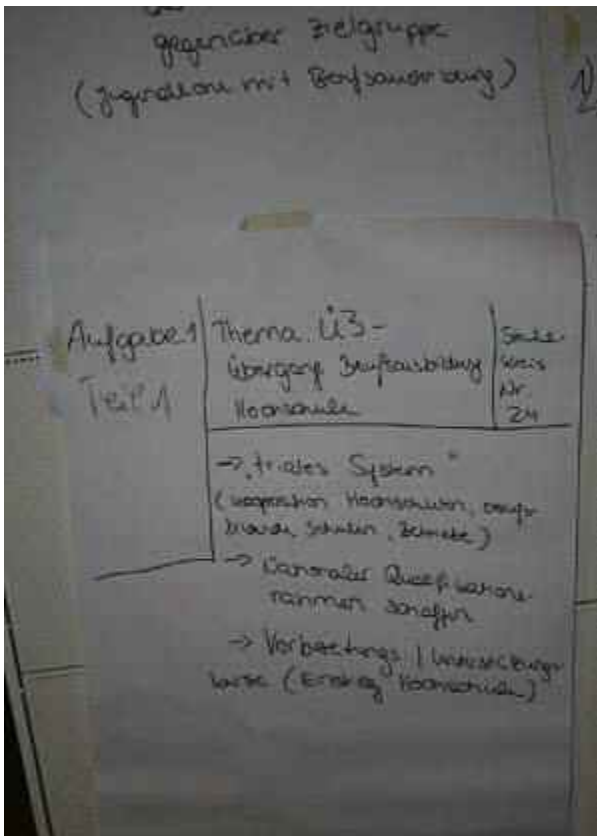 gegenüber Zielgruppe
(Jugendliche mit
Aufgabe 1
Teil 1
Thema: Ü3-
Übergang Berufsausbildung
Hochschule
Kreis
Nr.
24
→ "triales System"
(Kooperation Hochschulen,
Schulen, Betriebe)
→ Nationaler Qualifikations-
rahmen schaffen
→ Vorbereitungs / Unterstützungs-
kurse (Einstieg Hochschule)